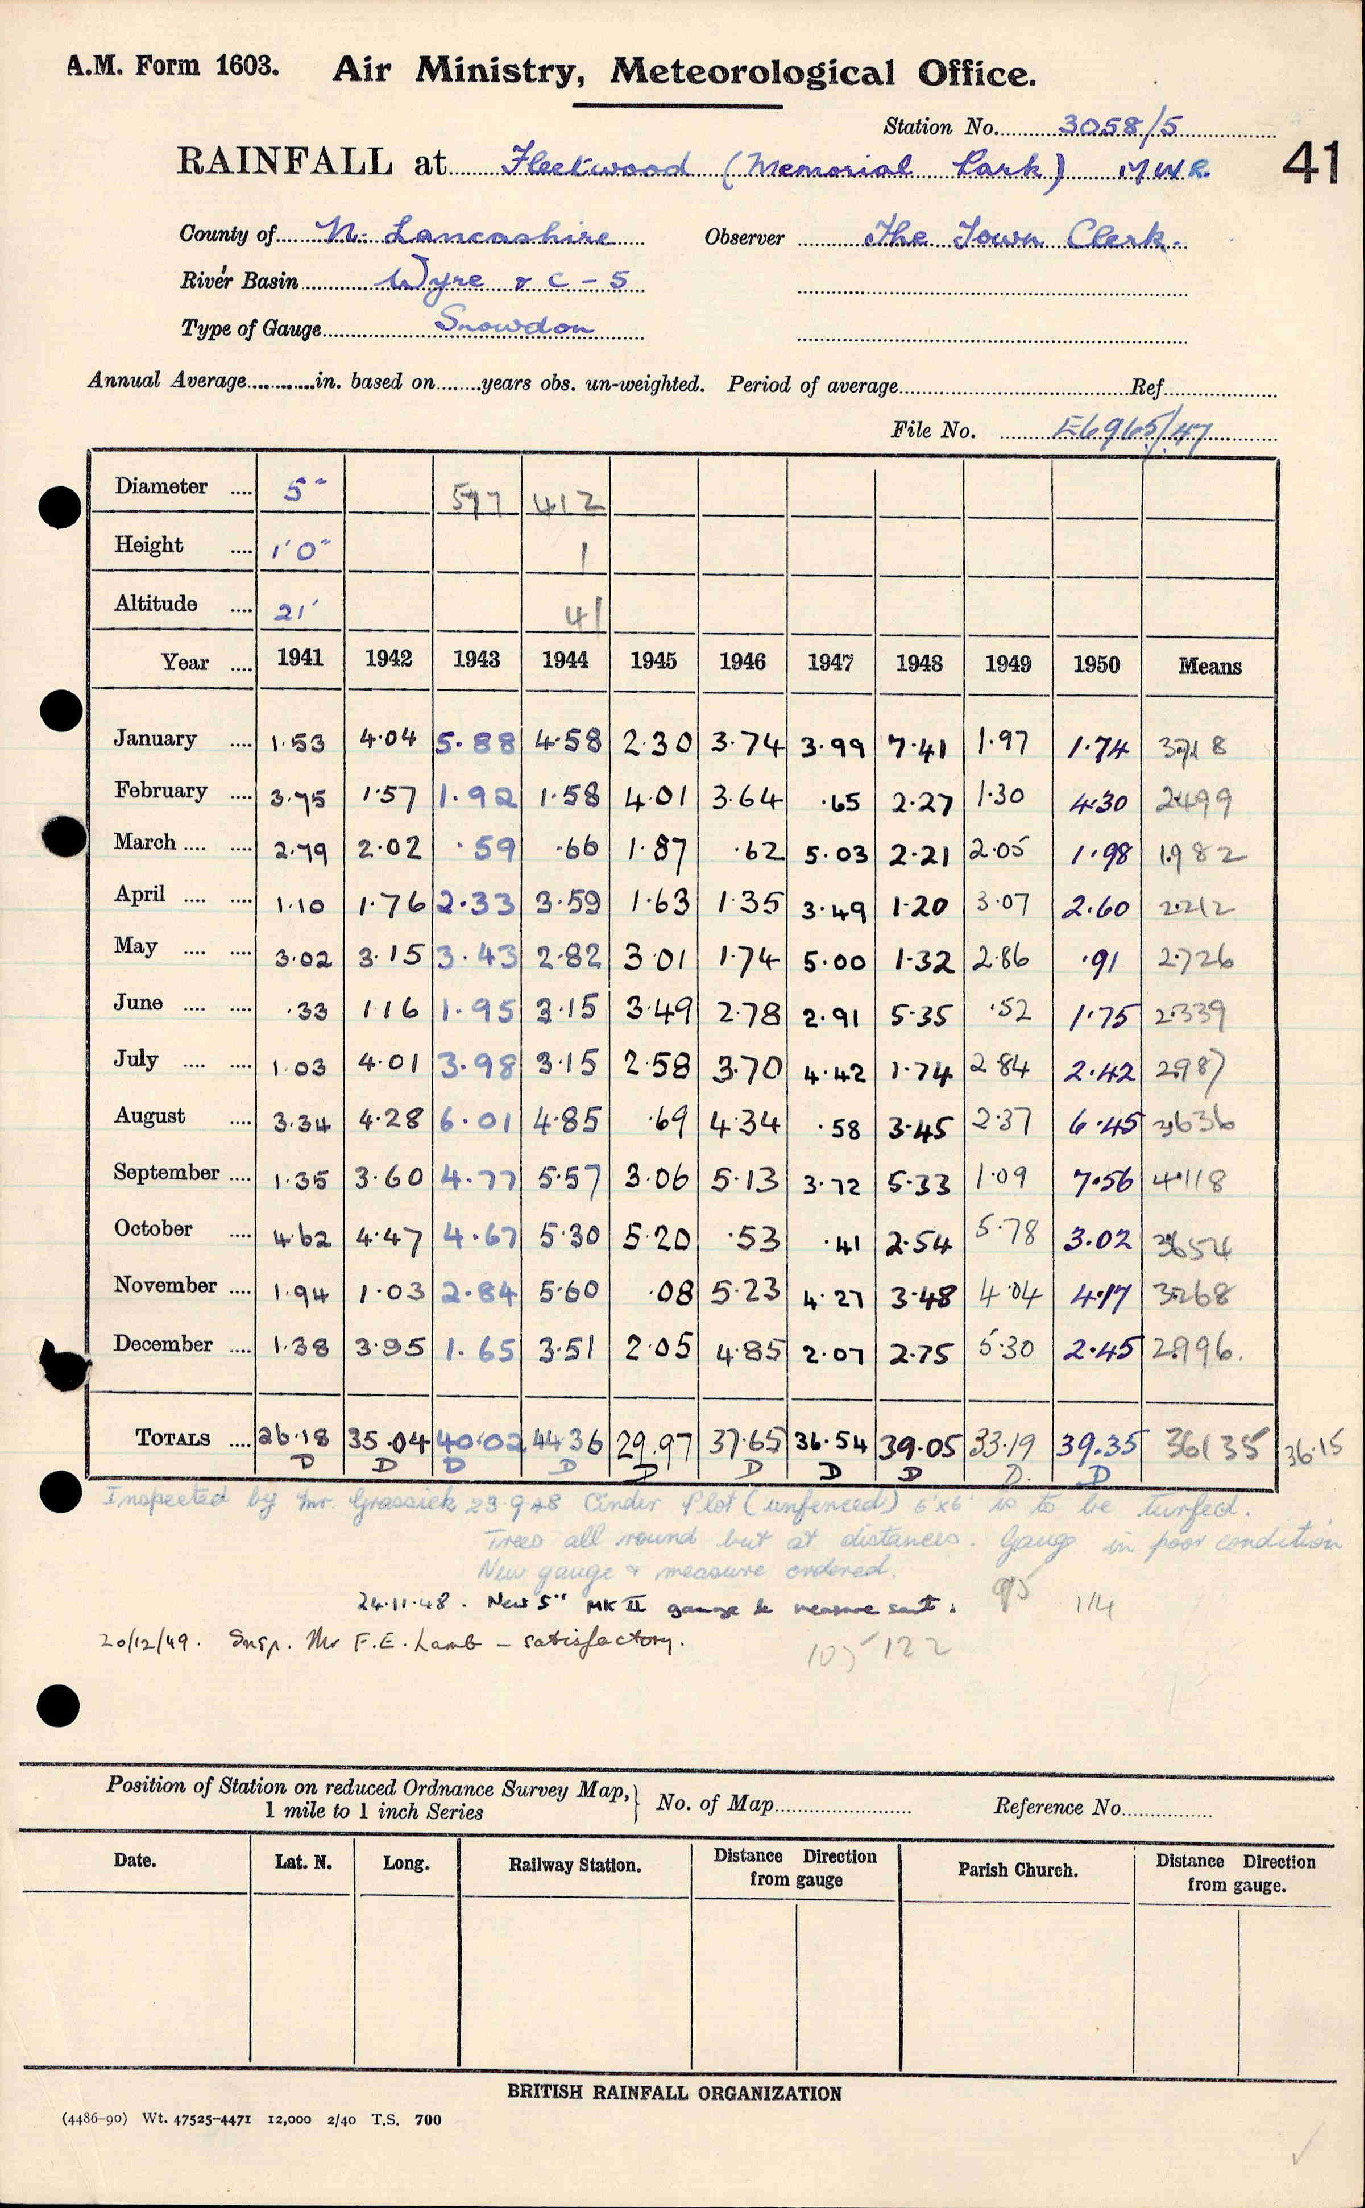 A.M. Form 1603. Air Ministry, Meteorological Office.
Station No. 3058/5
RAINFALL at Fleetwood (Memorial Park) MWR. 41
County of N. Lancashire Observer The Town Clerk.
River Basin Wyre & C - 5
Type of Gauge Snowdon
Annual Average in. based on years obs. un-weighted. Period of average Ref.
File No. E6965/47
Diameter 5" 577 412
Height 1'0" 1
Altitude 21' 41
Year 1941 1942 1943 1944 1945 1946 1947 1948 1949 1950 Means
January 1.53 4.04 5.88 4.58 2.30 3.74 3.99 7.41 1.97 1.74 3.718
February 3.75 1.57 1.92 1.58 4.01 3.64 .65 2.27 1.30 4.30 2.499
March 2.79 2.02 .59 .66 1.87 .62 5.03 2.21 2.05 1.98 1.982
April 1.10 1.76 2.33 3.59 1.63 1.35 3.49 1.20 3.07 2.60 2.212
May 3.02 3.15 3.43 2.82 3.01 1.74 5.00 1.32 2.86 .91 2.726
June .33 1.16 1.95 3.15 3.49 2.78 2.91 5.35 .52 1.75 2.339
July 1.03 4.01 3.98 3.15 2.58 3.70 4.42 1.74 2.84 2.42 2.987
August 3.34 4.28 6.01 4.85 .69 4.34 .58 3.45 2.37 6.45 3.636
September 1.35 3.60 4.77 5.57 3.06 5.13 3.72 5.33 1.09 7.56 4.118
October 4.62 4.47 4.67 5.30 5.20 .53 .41 2.54 5.78 3.02 3.654
November 1.94 1.03 2.84 5.60 .08 5.23 4.27 3.48 4.04 4.17 3.268
December 1.38 3.95 1.65 3.51 2.05 4.85 2.07 2.75 5.30 2.45 2.996.
TOTALS 26.18 35.04 40.02 44.36 29.97 37.65 36.54 39.05 33.19 39.35 36.135 36.15
D D D D D D D D D. D
Inspected by Mr. Grassick 23.9.48 Cinder Plot (unfenced) 6'x6' is to be turfed.
Trees all round but at distances. Gauge in poor condition
New gauge & measure ordered.
24.11.48. New 5" MK II gauge & measure sent. 95 114
20/12/49. Insp. Mr F.E. Lamb - satisfactory. 105 122
Position of Station on reduced Ordnance Survey Map, 1 mile to 1 inch Series } No. of Map Reference No.
Date. Lat. N. Long. Railway Station. Distance Direction from gauge Parish Church. Distance Direction from gauge.
BRITISH RAINFALL ORGANIZATION
(4486-90) Wt. 47525-4471 12,000 2/40 T.S. 700